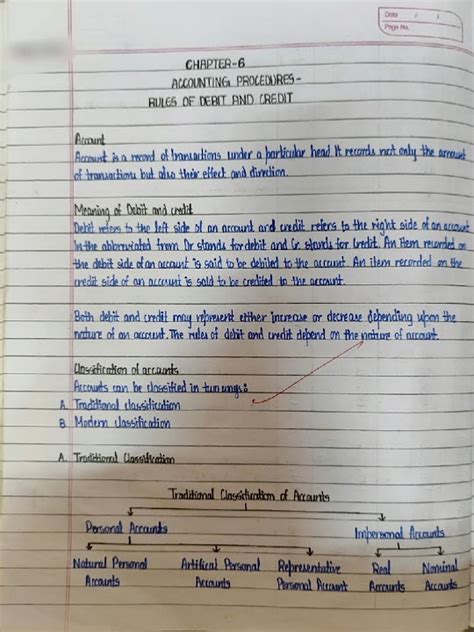 Date / /
Page No.
CHAPTER-6
ACCOUNTING PROCEDURES-
RULES OF DEBIT AND CREDIT
Account
Account is a record of transactions under a particular head. It records not only the amount
of transactions but also their effect and direction.
Meaning of Debit and credit
Debit refers to the left side of an account and credit refers to the right side of an account.
In the abbreviated from Dr stands for debit and Cr. stands for Credit. An item recorded on
the debit side of an account is said to be debited to the account. An item recorded on the
credit side of an account is said to be credited to the account.
Both debit and credit may represent either increase or decrease depending upon the
nature of an account. The rules of debit and credit depend on the nature of account.
Classification of accounts
Accounts can be classified in two ways:
A. Traditional classification
B. Modern classification
A. Traditional Classification
Traditional Classification of Accounts
Personal Accounts Impersonal Accounts
Natural Personal Artifical Personal Representative Real Nominal
Accounts Accounts Personal Account Accounts Accounts